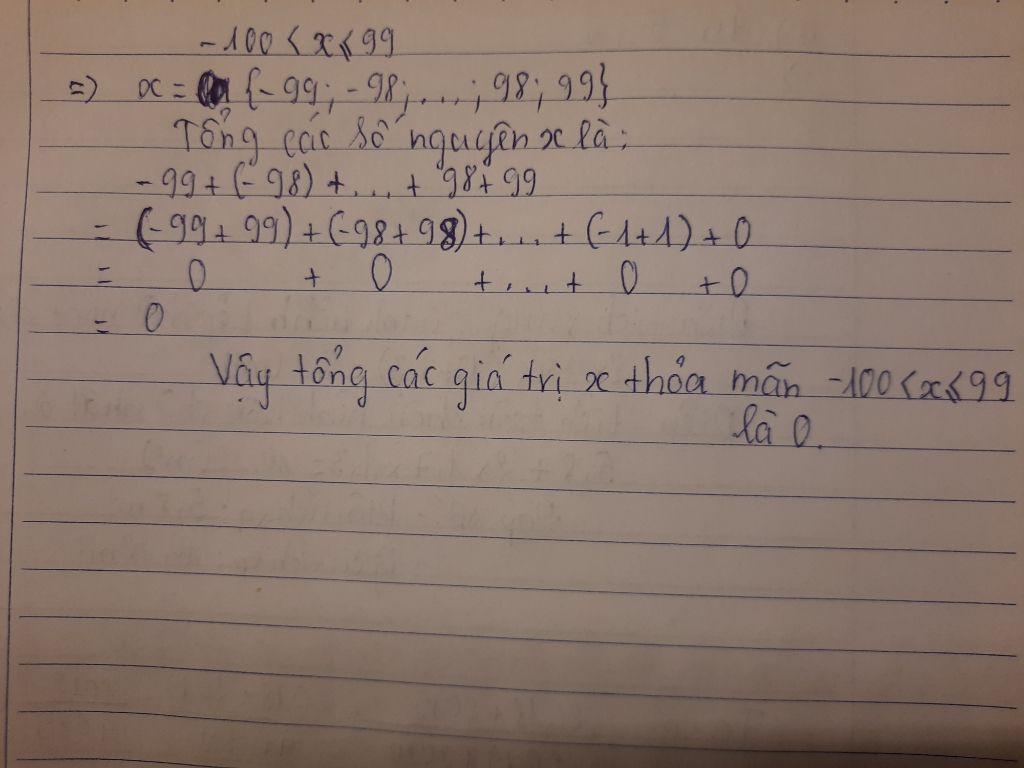 -100 < x ≤ 99
=> x = {-99; -98; ...; 98; 99}
Tổng các số nguyên x là:
-99 + (-98) + ... + 98 + 99
= (-99 + 99) + (-98 + 98) + ... + (-1 + 1) + 0
= 0 + 0 + ... + 0 + 0
= 0
Vậy tổng các giá trị x thỏa mãn -100 < x ≤ 99
là 0.